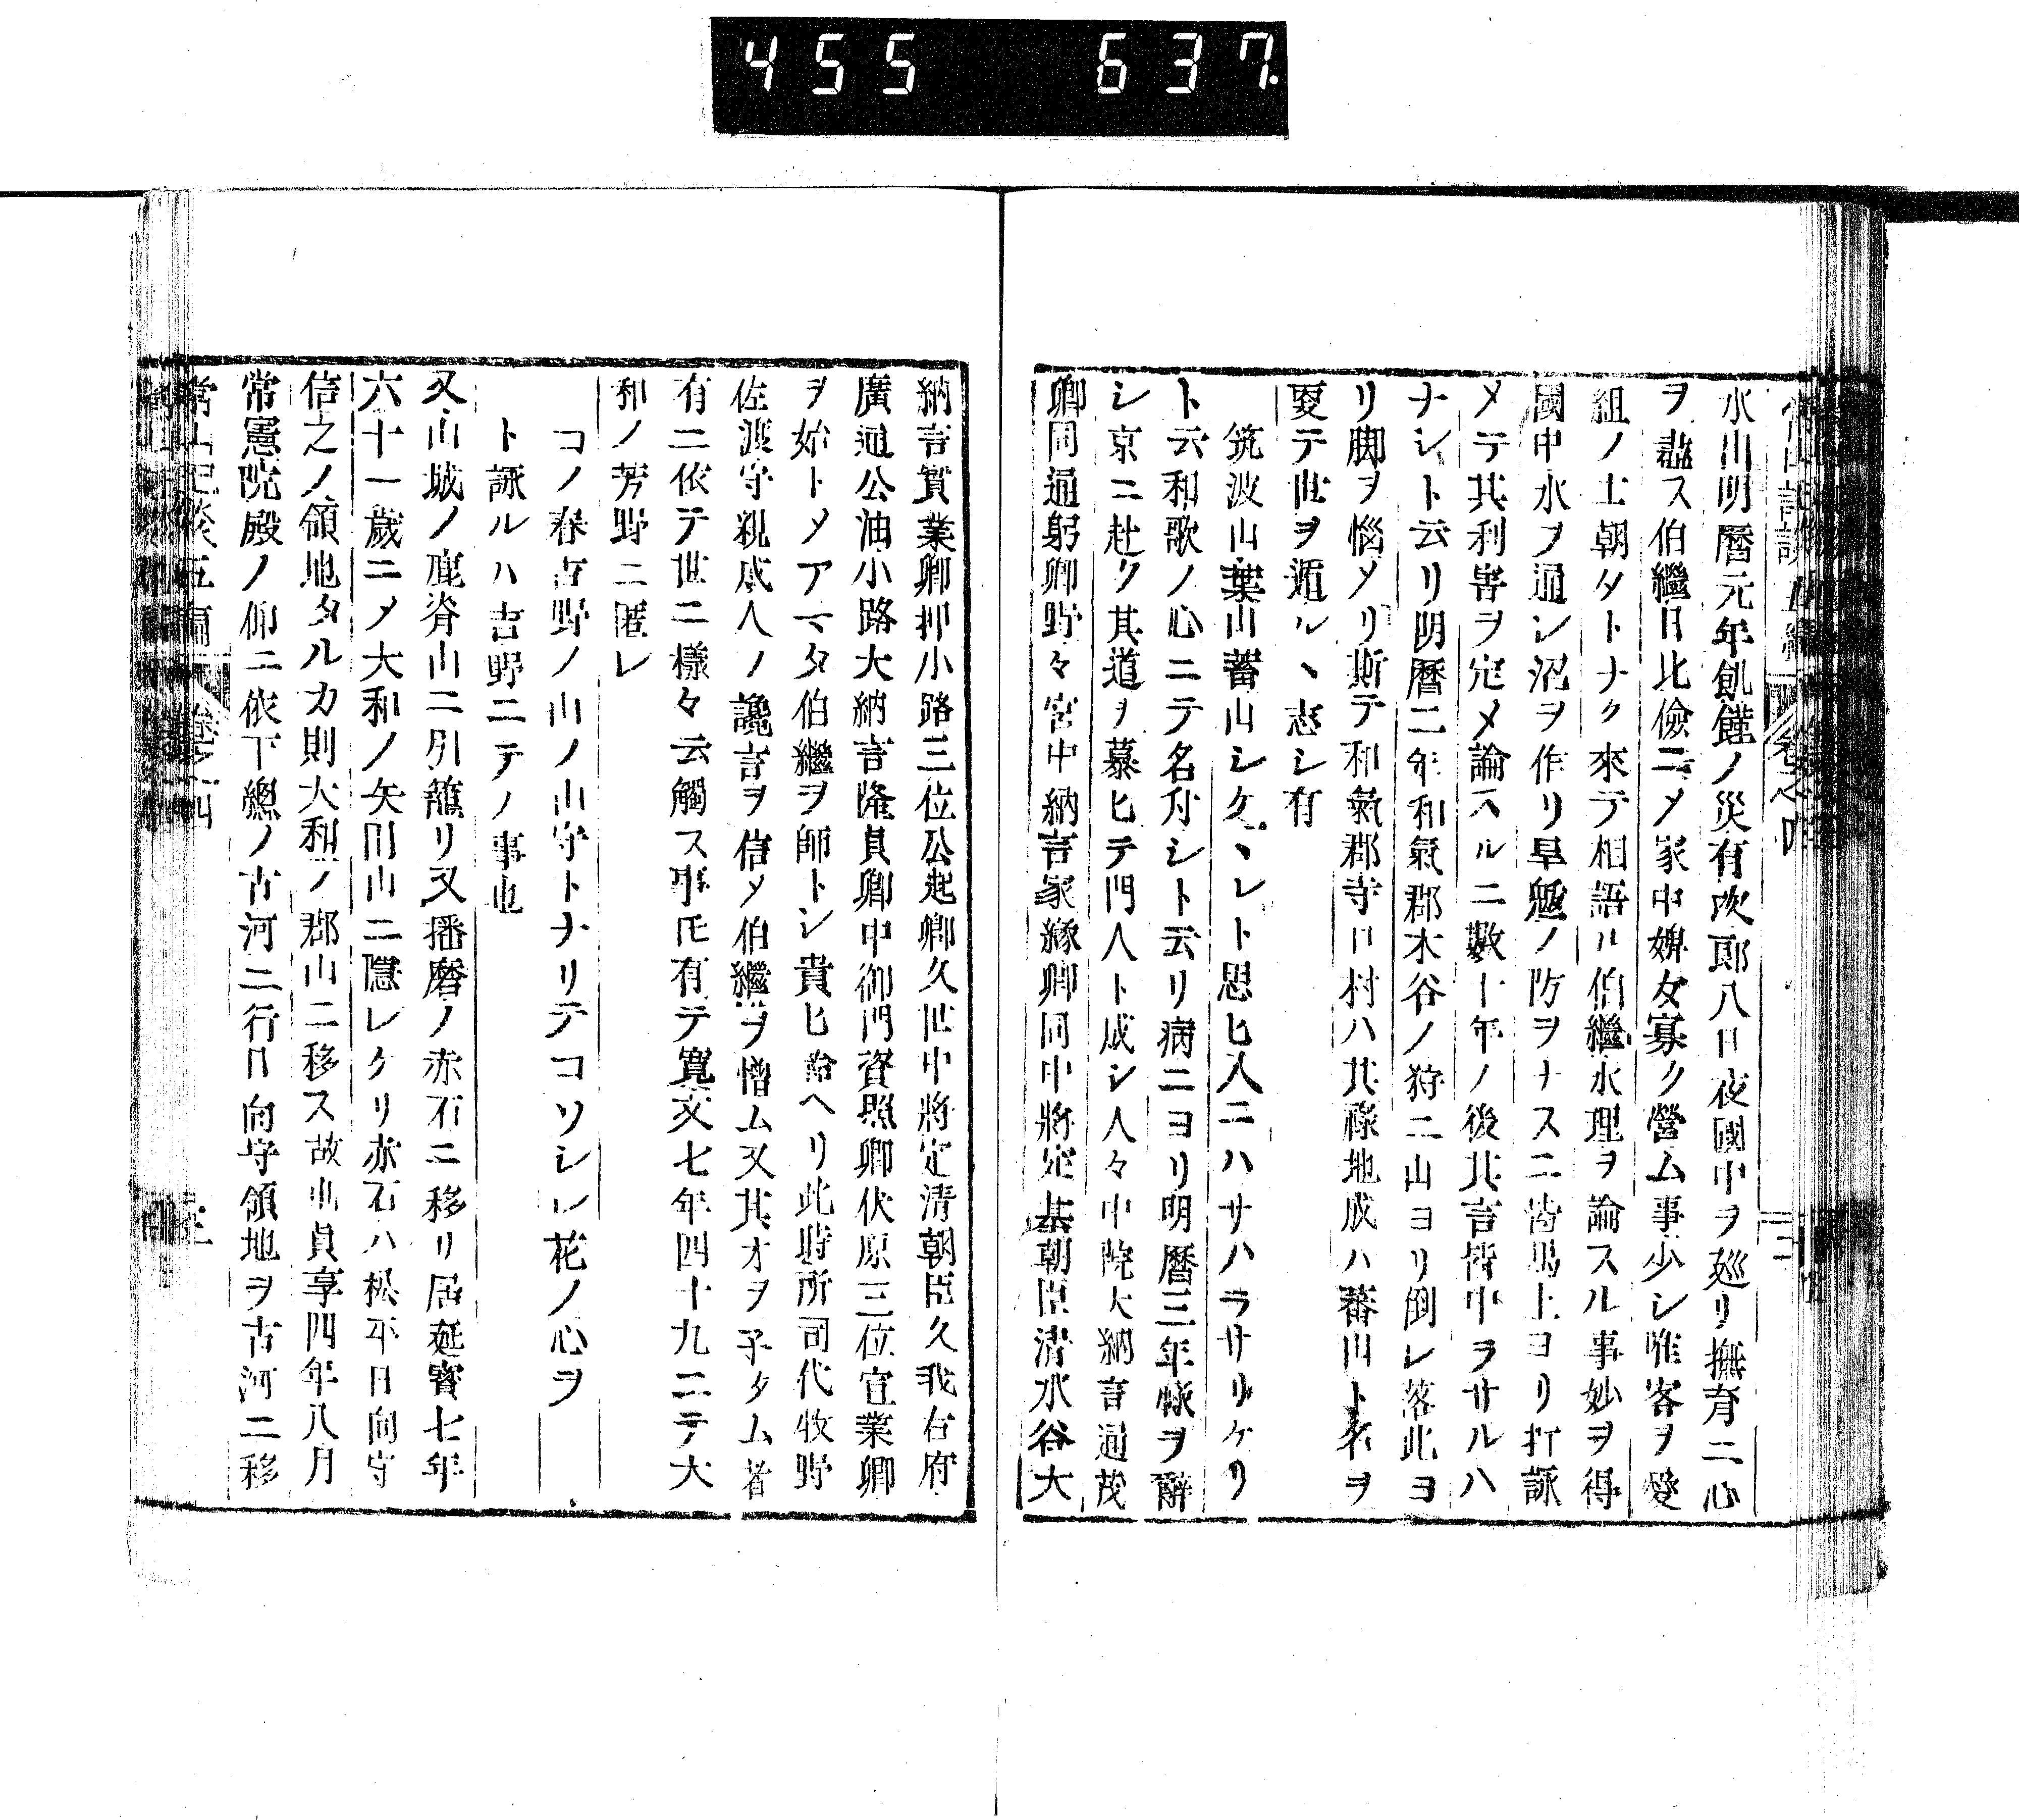 455 637.
水川明曆元年飢饉ノ災有次郎八日夜國中ヲ廵リ撫育ニ心
ヲ盡ス伯繼日比儉ニメ家中婢女寡ク營ム事少シ唯客ヲ愛
組ノ士朝タトナク來テ相語ル伯繼水理ヲ論スル事妙ヲ得
國中水ヲ通シ沼ヲ作リ旱魃ノ防ヲナスニ皆馬上ヨリ打詠
メテ其利害ヲ定メ論スルニ數十年ノ後其言皆中ラサルハ
ナシト云リ明曆二年和氣郡木谷ノ狩ニ山ヨリ倒レ落此ヨ
リ脚ヲ惱メリ斯テ和氣郡寺口村ハ其祿地成ハ蕃山ト名ヲ
更テ世ヲ遁ルヽ志シ有
筑波山葉山蕃山シケヽレト思ヒ入ニハサハラサリケリ
ト云和歌ノ心ニテ名付シト云リ病ニヨリ明曆三年祿ヲ辭
シ京ニ赴ク其道ヲ慕ヒテ門人ト成シ人々中院大納言通茂
卿同通躬卿野々宮中納言家緣卿同中將定基朝臣淸水谷大
納言實業卿押小路三位公起卿久世中將定清朝臣久我右府
廣通公油小路大納言隆貞卿中御門資熙卿伏原三位宣業卿
ヲ始トメアマタ伯繼ヲ師トシ貴ヒ給ヘリ此時所司代牧野
佐渡守親成人ノ讒言ヲ信メ伯繼ヲ憎ム又其才ヲ子タム者
有ニ依テ世ニ樣々云觸ス事𪜈有テ寬文七年四十九ニテ大
和ノ芳野ニ匿レ
コノ春吉野ノ山ノ山守トナリテコソシレ花ノ心ヲ
ト詠ルハ吉野ニテノ事也
又山城ノ鹿脊山ニ引籠リ又播磨ノ赤石ニ移リ居延寶七年
六十一歲ニメ大和ノ矢田山ニ隱レケリ赤石ハ松平日向守
信之ノ領地タルカ則大和ノ郡山ニ移ス故也貞享四年八月
常憲院殿ノ仰ニ依下總ノ古河ニ行日向守領地ヲ古河ニ移
常山紀談五編 卷之四